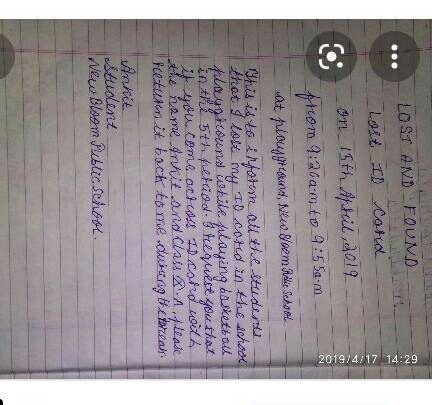 LOST AND FOUND
Lost ID Card
on 15th April, 2019
from 9:20am to 9:55am
at playground, New Bloom Public School
This is to inform all the students
that I lose my ID card in the school
playground while playing basketball
in the 5th period. I request you that
if you come across ID card with
the name Ankit and class A please
return it back to me during the break.
Ankit
Student
New Bloom Public School.
2019/4/17 14:29